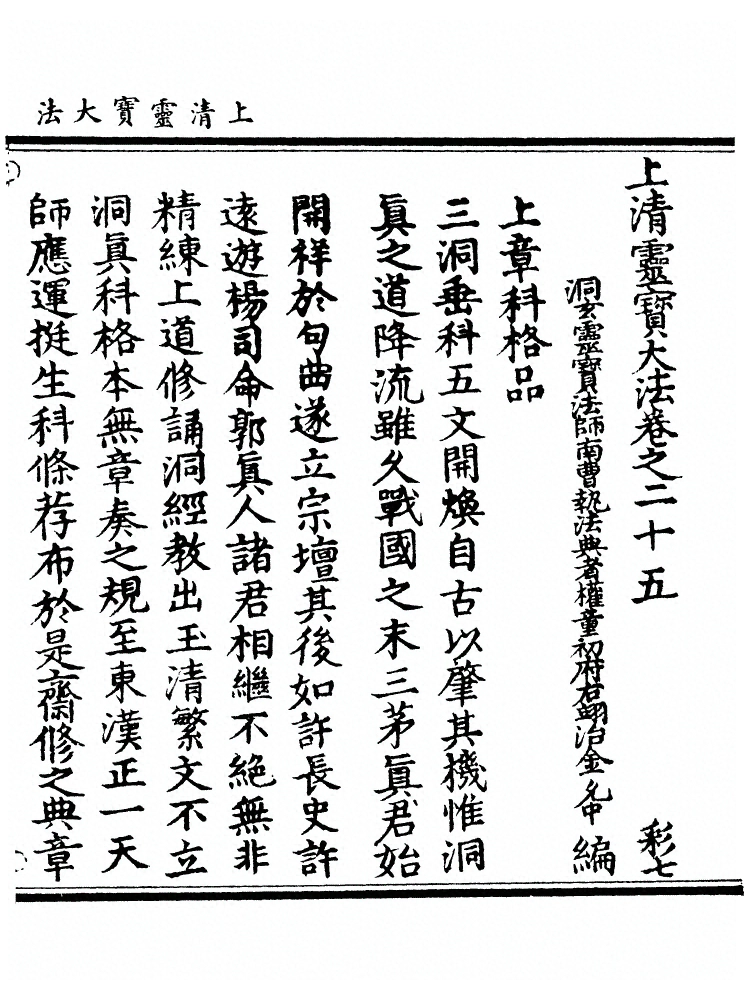 上清靈寶大法
上清靈寶大法卷之二十五
彩七
洞玄靈寶法師南曹執法典者權童初府右翊治金允中編
上章科格品
三洞垂科五文開煥自古以肇其機惟洞
眞之道降流雖久戰國之末三茅眞君始
開祥於句曲遂立宗壇其後如許長史許
遠遊楊司命郭眞人諸君相繼不絕無非
精練上道修誦洞經教出玉清繁文不立
洞眞科格本無章奏之規至東漢正一天
師應運挺生科條荐布於是齋修之典章